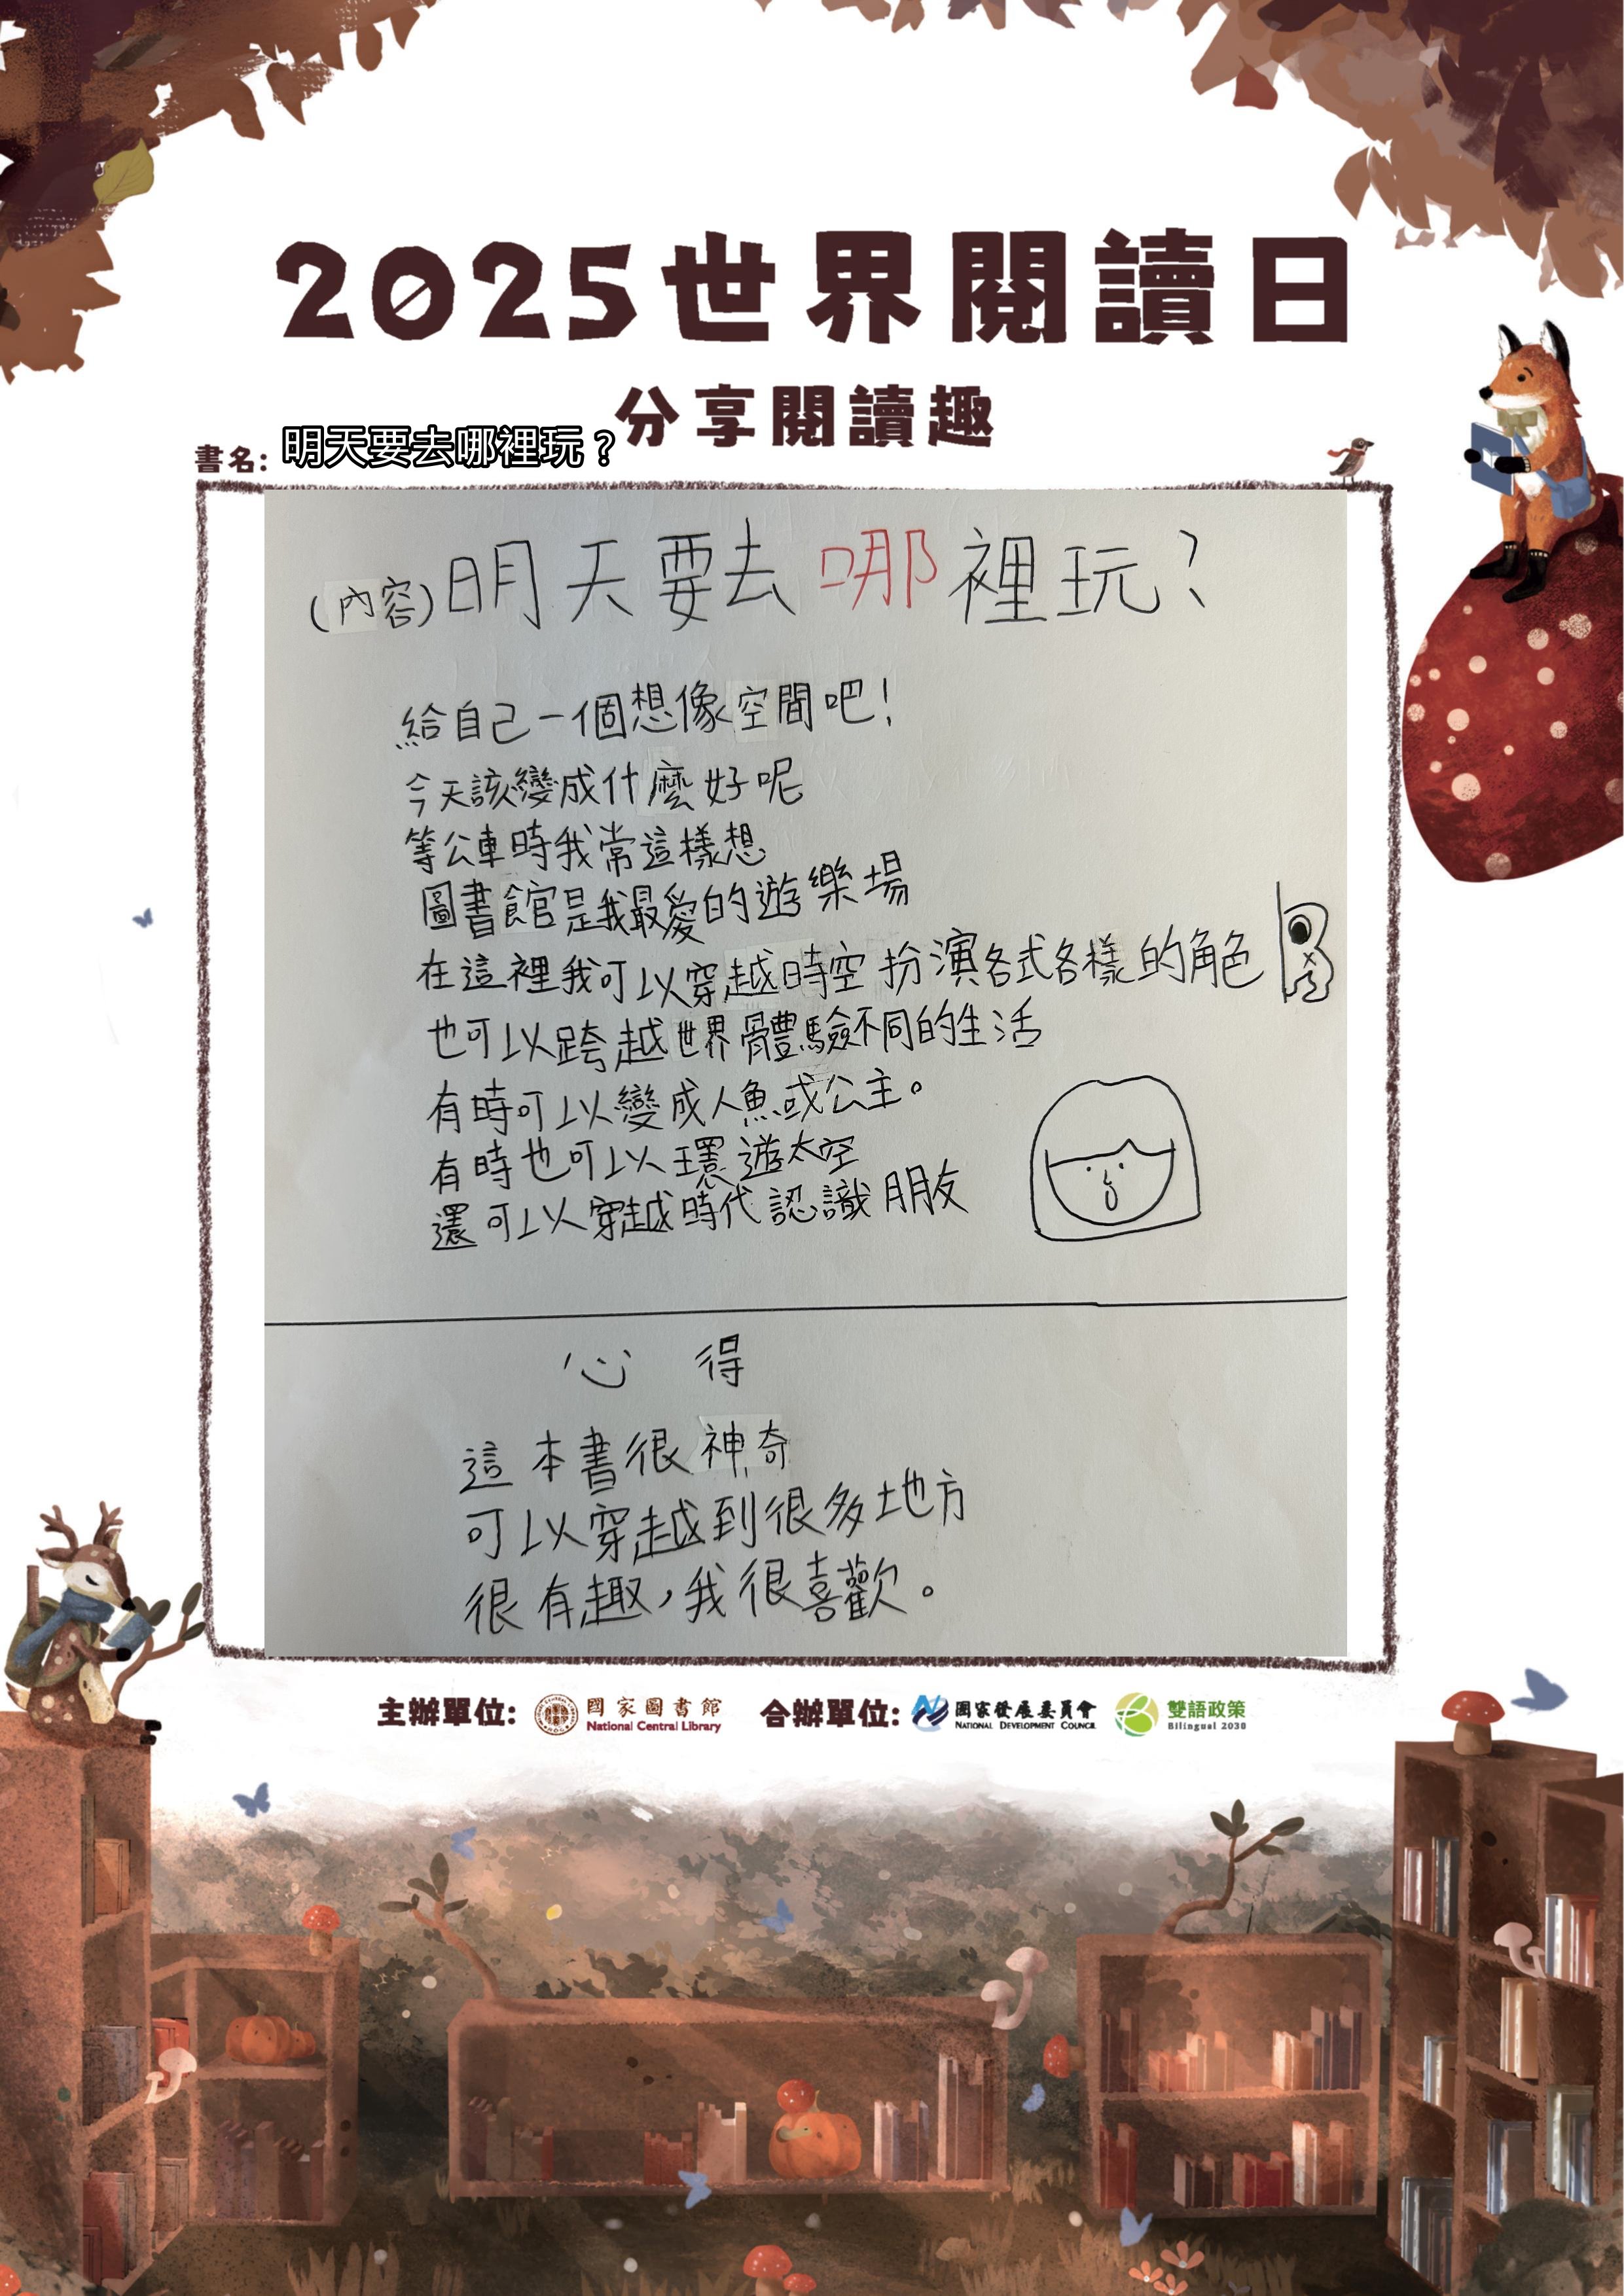 2025世界閱讀日
分享閱讀趣
書名: 明天要去哪裡玩？
(內容)明天要去哪裡玩？
給自己一個想像空間吧！
今天該變成什麼好呢
等公車時我常這樣想
圖書館是我最愛的遊樂場
在這裡我可以穿越時空 扮演各式各樣的角色
也可以跨越世界體驗不同的生活
有時可以變成人魚或公主。
有時也可以環遊太空
還可以穿越時代認識朋友
心得
這本書很神奇
可以穿越到很多地方
很有趣，我很喜歡。
主辦單位: 國家圖書館 National Central Library 合辦單位: 國家發展委員會 NATIONAL DEVELOPMENT COUNCIL 雙語政策 Bilingual 2030